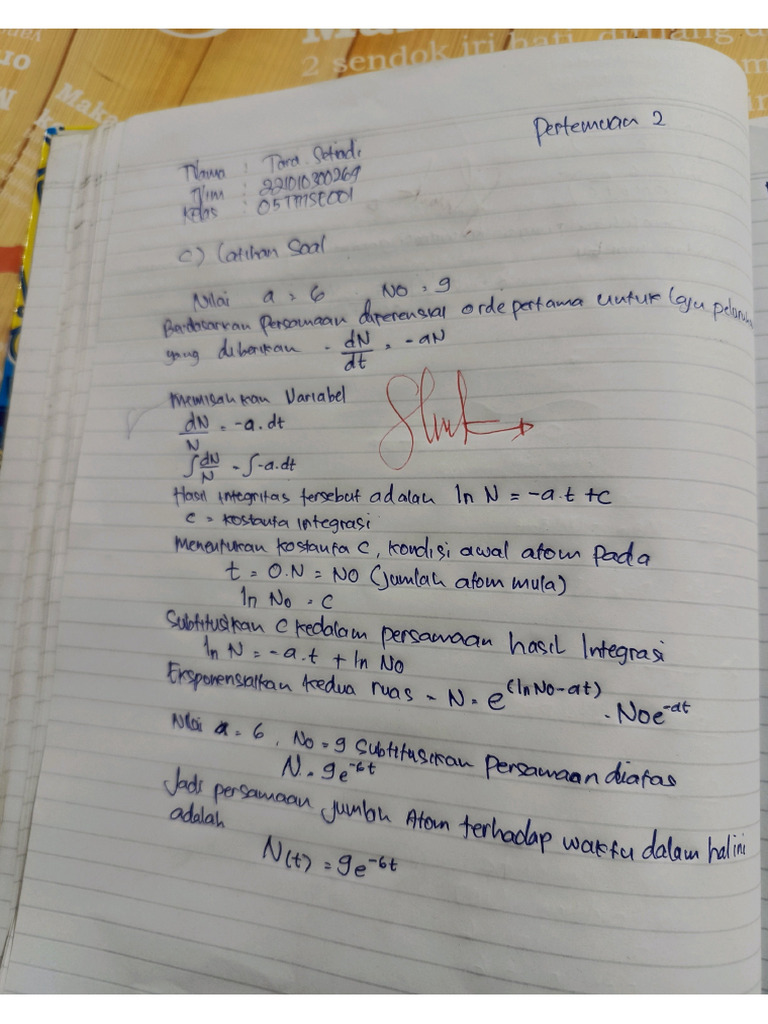 Ma
2 sendok iri hati, di
Maka
Pertemuan 2
Nama : Tara Setiadi
Nim : 221010300269
Kelas : 05TMSE001
c) Latihan Soal
Nilai a = 6 No = 9
Berdasarkan Persamaan diferensial orde pertama untuk laju peluruh
yang diberikan = dN/dt = -aN
Memisahkan Variabel
dN/N = -a.dt
∫dN/N = ∫-a.dt
Hasil integritas tersebut adalah ln N = -a.t + c
c = kostanta integrasi
Menentukan kostanta c, kondisi awal atom pada
t = 0.N = NO (jumlah atom mula)
ln No = c
Subtitusikan c kedalam persamaan hasil Integrasi
ln N = -a.t + ln NO
Eksponensialkan kedua ruas = N = e^(lnNo-at) = Noe^-at
Nilai a = 6, No = 9 Subtitusikan Persamaan diatas
N = 9e^-6t
Jadi persamaan jumlah Atom terhadap waktu dalam hal ini
adalah
N(t) = 9e^-6t